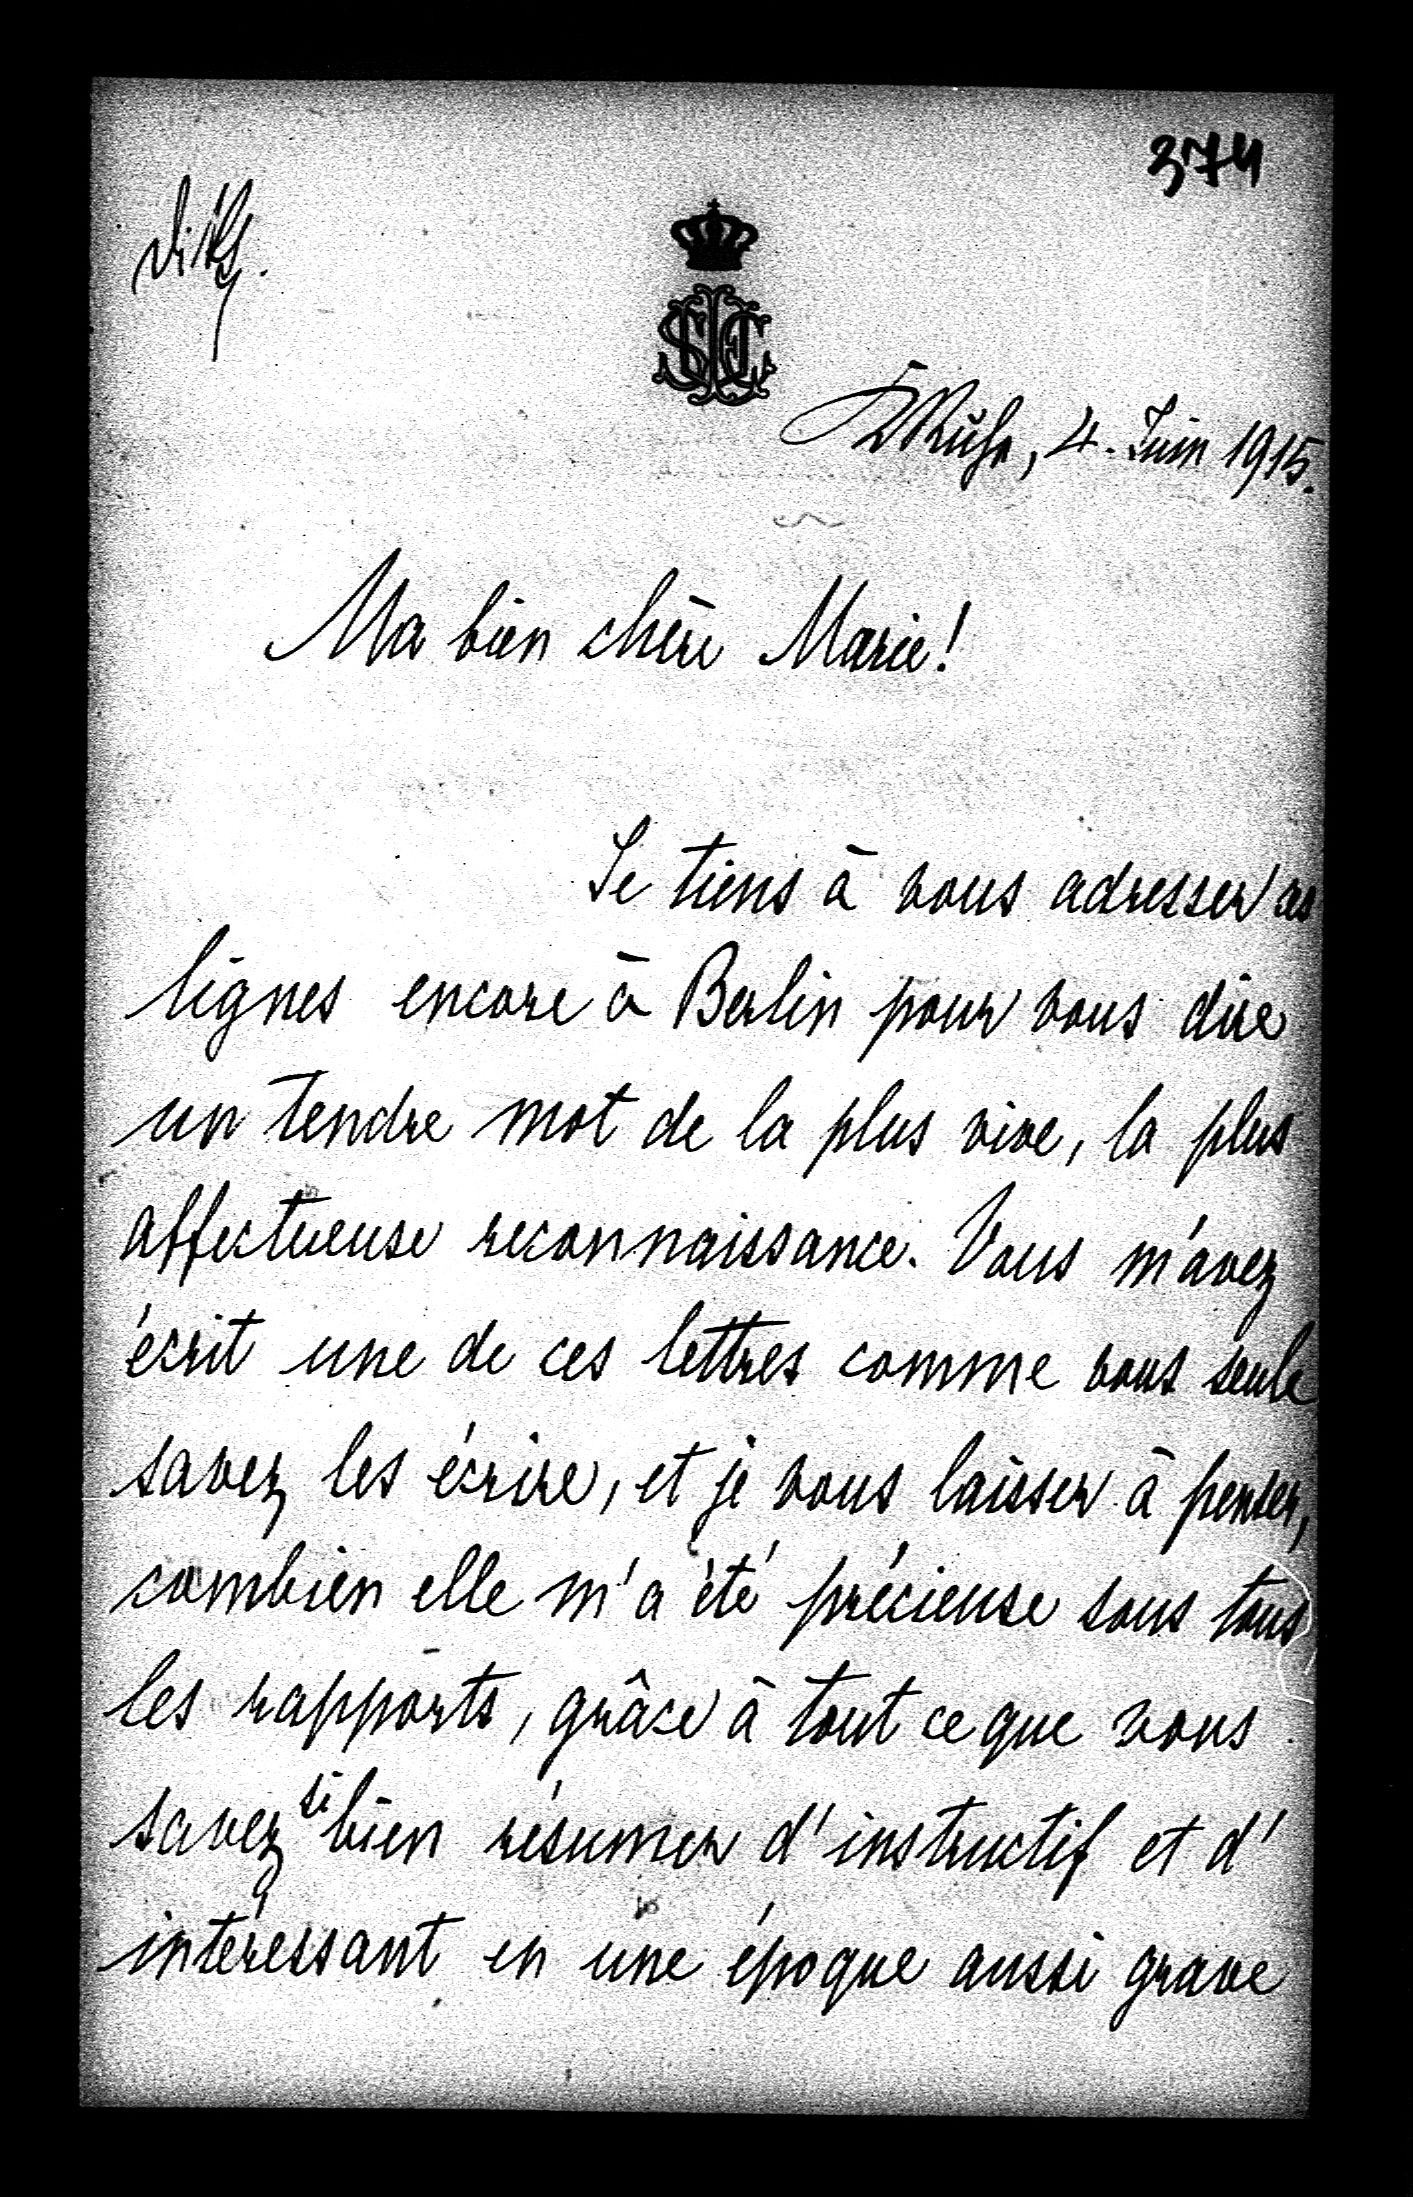 374
4. Juin 1915.
Ma bien chère Marie!
Je tiens à vous adresser ces
lignes encore à Berlin pour vous dire
un tendre mot de la plus vive, la plus
affectueuse reconnaissance. Vous m'avez
écrit une de ces lettres comme vous seule
savez les écrire, et je vous laisser à penser,
combien elle m'a été précieuse sous tous
les rapports, grâce à tout ce que vous
savez si bien résumer d'instructif et d'
intéressant en une époque aussi grave